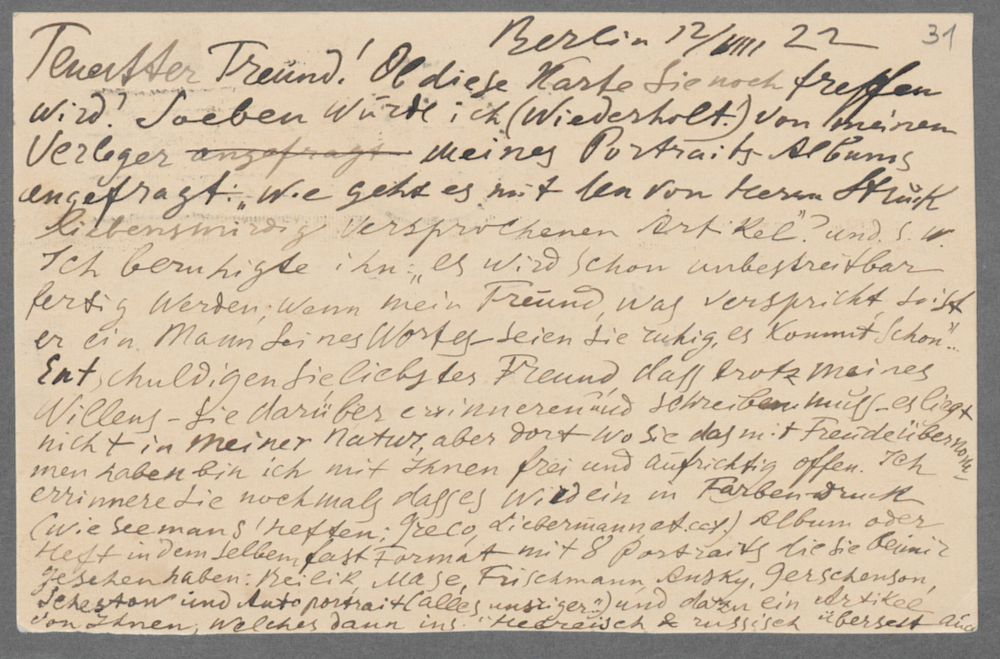 Berlin 12/VIII 22 31
Teuerster Freund! Ob diese Karte Sie noch treffen
wird? Soeben wurde ich (wiederholt!) von meinem
Verleger angefragt meines Portraits-Albums
angefragt: „wie geht es mit den von Herrn Struck
liebenswürdig versprochenen Artikel"? und s. w.
Ich beruhigte ihn: „es wird schon unbestreitbar
fertig werden; wenn mein Freund, was verspricht, so ist
er ein Mann seines Wortes – seien Sie ruhig, es kommt schon"..
Entschuldigen Sie liebster Freund, dass trotz meines
Willens – Sie darüber errinneren und schreiben muss – es liegt
nicht in meiner Natur, aber dort wo Sie das mit Freude übernom-
men haben bin ich mit Ihnen frei und aufrichtig offen. Ich
errinnere Sie nochmals dass es wird ein in Farben-Druck
(wie Seemans' Heften: Greco, Liebermann et. ct.) Album oder
Heft in dem selben fast Format mit 8 Portraits die Sie bei mir
gesehen haben: Beilik, Mase, Frischmann, Ansky, Gerschenson,
Schestow und Autoportrait (alles „unsriger") und dazu ein Artikel
von Ihnen, welches dann ins Hebreisch & russisch übersetzt auch